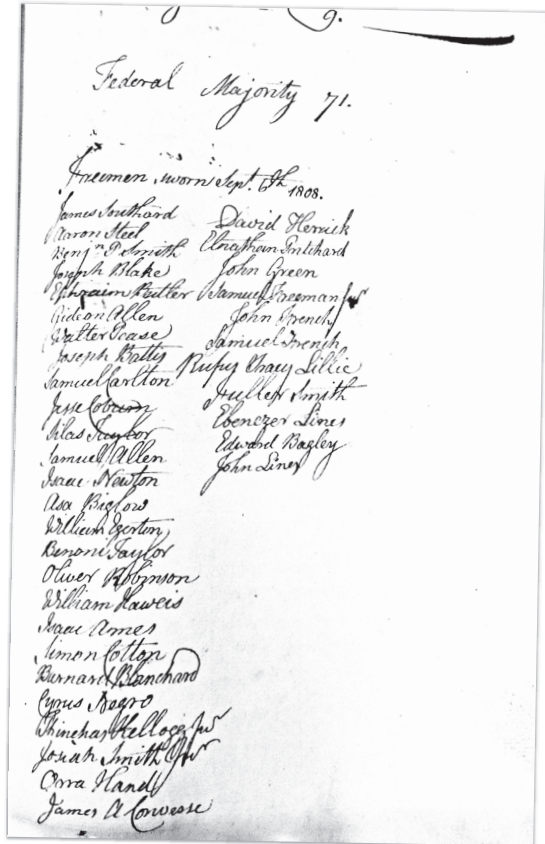 9.
Federal Majority 71.
Freemen sworn Sept. 6th 1808.
James Southard
Aaron Steel
Benjn P Smith
Joseph Blake
Ephraim Butler
Gideon Allen
Walter Pease
Joseph Battis
Samuel Carlton
Jesse Coburn
Silas Taylor
Samuel Allen
Isaac Newton
Asa Biglow
William Egerton
Benoni Taylor
Oliver Robinson
William Haweis
Isaac Ames
Simon Cotton
Barnard Blanchard
Cyrus Negro
Phinehas Kellogg Jur
Josiah Smith Jur
Orra Hand
James A Converse
David Herrick
Elnathan Pritchard
John Green
Samuel Freeman Jur
John French
Samuel French
Rufus Chacy Lillie
Fuller Smith
Ebenezer Lines
Edward Bagley
John Lines